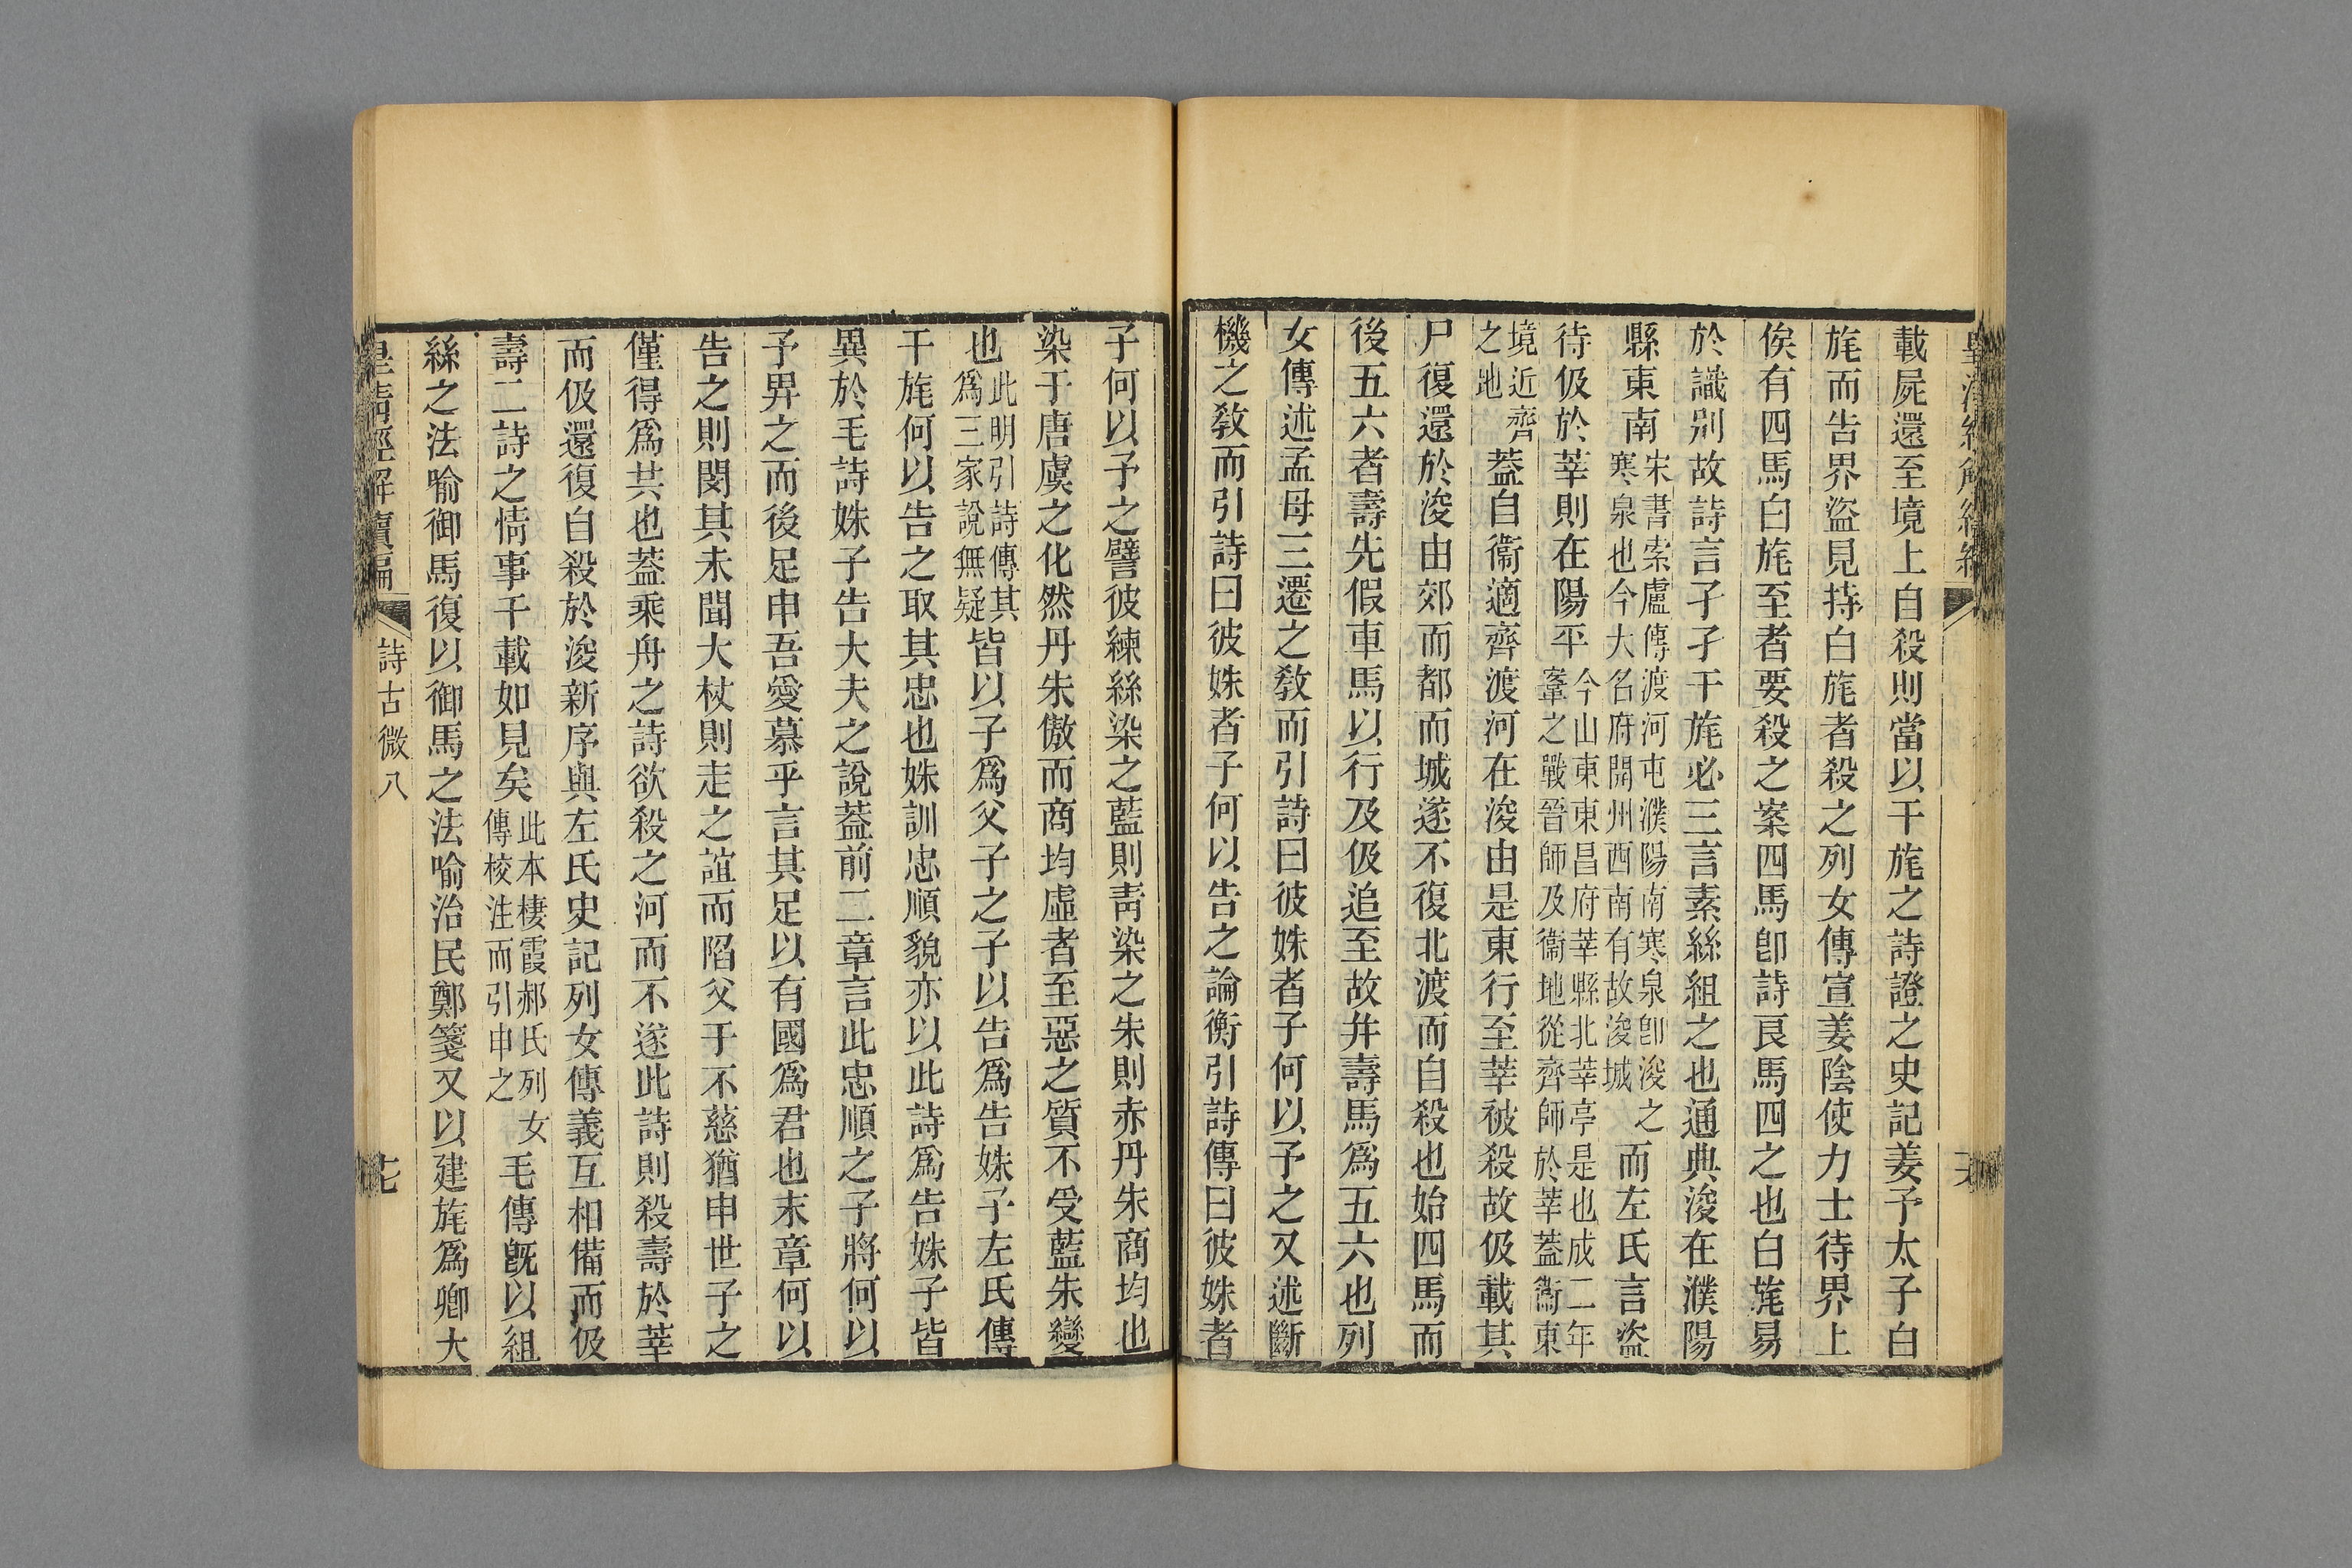 載屍還至境上自殺則當以干旄之詩證之史記姜予太子白
旄而告界盜見持白旄者殺之列女傳宣姜陰使力士待界上
俟有四馬白旄至者要殺之案四馬卽詩良馬四之也白旄易
於識別故詩言孑孑干旄必三言素絲組之也通典浚在濮陽
縣東南宋書索盧傳渡河屯濮陽南寒泉卽浚之寒泉也今大名府開州西南有故浚城而左氏言盜
待伋於莘則在陽平今山東東昌府莘縣北莘亭是也成二年鞌之戰晉師及衞地從齊師於莘蓋衞東
境近齊之地蓋自衞適齊渡河在浚由是東行至莘被殺故伋載其
尸復還於浚由郊而都而城遂不復北渡而自殺也始四馬而
後五六者壽先假車馬以行及伋追至故幷壽馬爲五六也列
女傳述孟母三遷之敎而引詩曰彼姝者子何以予之又述斷
機之敎而引詩曰彼姝者子何以告之論衡引詩傳曰彼姝者
子何以予之譬彼練絲染之藍則靑染之朱則赤丹朱商均也
染于唐虞之化然丹朱傲而商均虛者至惡之質不受藍朱變
也此明引詩傳其爲三家說無疑皆以子爲父子之子以告爲告姝子左氏傳
干旄何以告之取其忠也姝訓忠順貌亦以此詩爲告姝子皆
異於毛詩姝子告大夫之說蓋前二章言此忠順之子將何以
予畀之而後足申吾愛慕乎言其足以有國爲君也末章何以
告之則閔其未聞大杖則走之誼而陷父于不慈猶申世子之
僅得爲共也蓋乘舟之詩欲殺之河而不遂此詩則殺壽於莘
而伋還復自殺於浚新序與左氏史記列女傳義互相備而伋
壽二詩之情事千載如見矣此本棲霞郝氏列女傳校注而引申之毛傳旣以組
絲之法喻御馬復以御馬之法喻治民鄭箋又以建旄爲卿大
皇淸經解續編
詩古微八